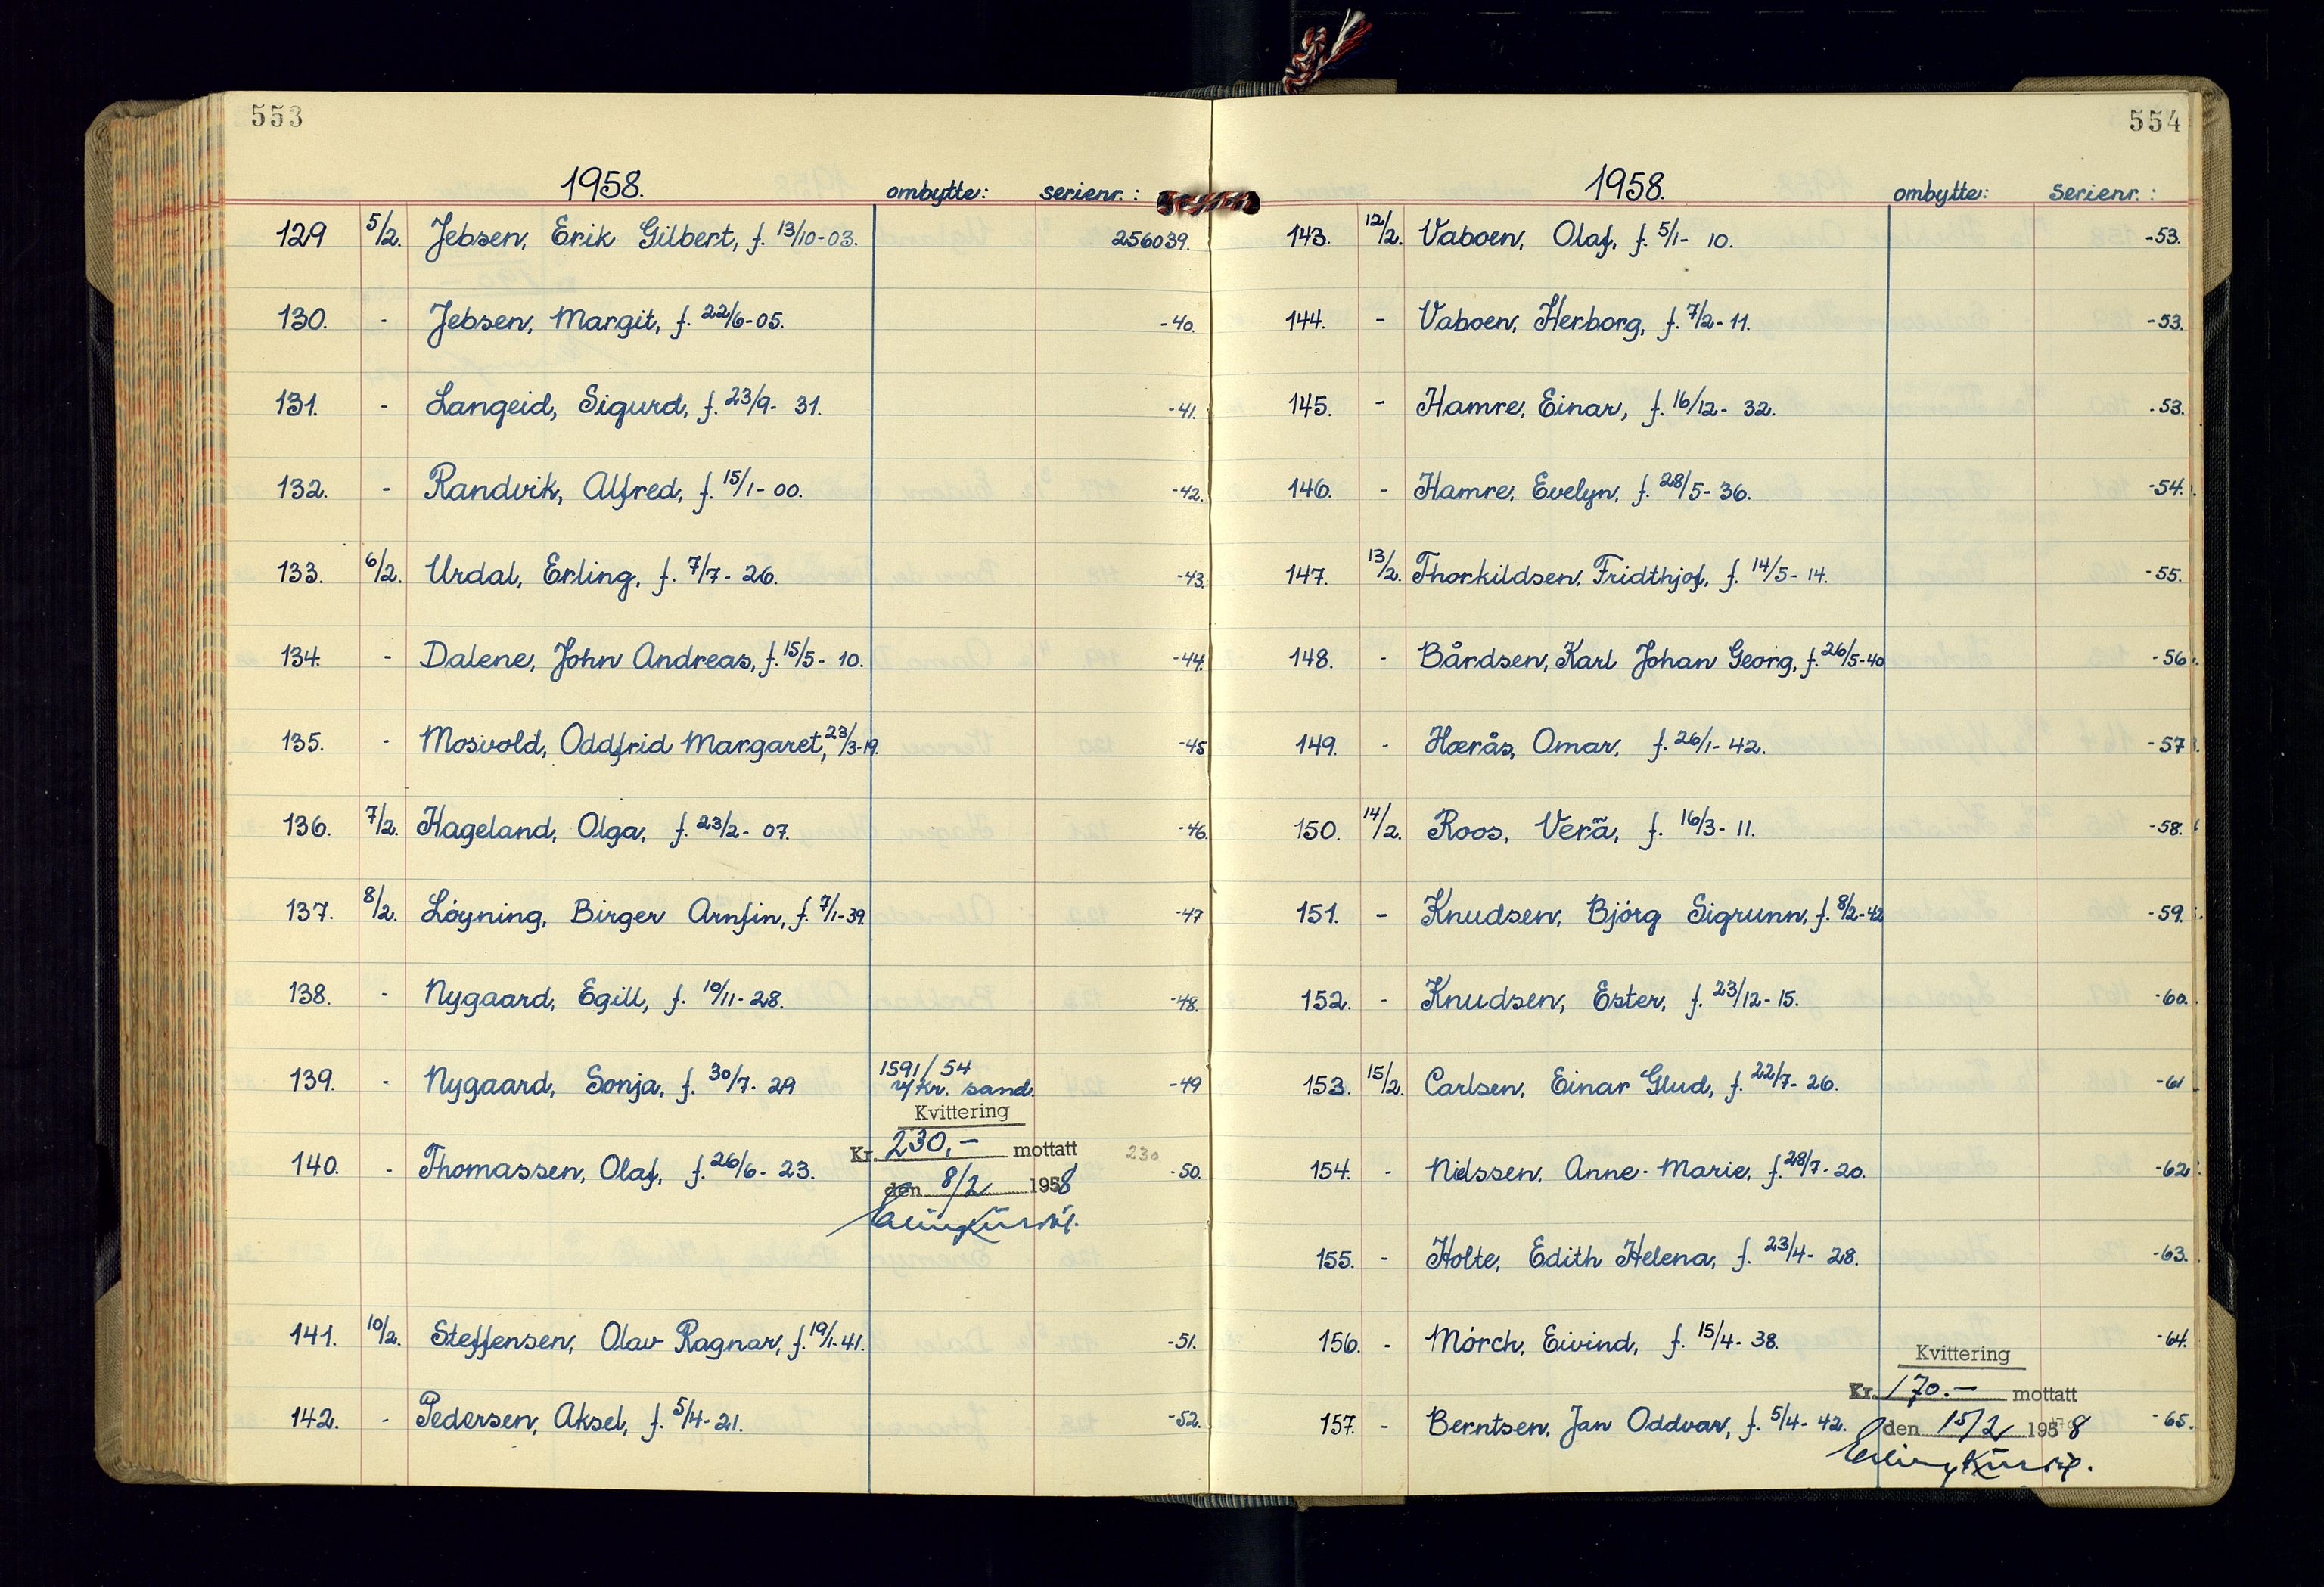 553
1958. ombytte: serienr.:
129 5/2. Jebsen, Erik Gilbert, f. 13/10-03. 256039.
130. - Jebsen, Margit, f. 22/6-05. -40.
131. - Langeid, Sigurd, f. 23/9- 31. -41.
132. - Randvik, Alfred, f. 15/1- 00. -42.
133. 6/2. Urdal, Erling, f. 7/7- 26. -43.
134. - Dalene, John Andreas, f. 15/5- 10. -44.
135. - Mosvold, Oddfrid Margaret, 23/3-19. -45
136. 7/2. Hageland, Olga, f. 23/2- 07. -46.
137. 8/2. Løyning, Birger Arnfin, f. 7/1-39. -47
138. - Nygaard, Egill, f. 10/11-28. -48.
139. - Nygaard, Sonja, f. 30/7- 29 1591/54 -49
v/Kr. sand.
Kvittering
140. - Thomassen, Olaf, f. 26/6- 23. Kr. 230,- mottatt 230 -50.
den 8/2 1958
141. 10/2. Steffensen, Olav Ragnar, f. 19/1-41. -51.
142. - Pedersen, Aksel, f. 5/4-21. -52.
554
1958. ombytte: serienr.:
143. 12/2. Vaboen, Olaf, f. 5/1- 10. -53.
144. - Vaboen, Herborg, f. 7/2-11. -53.
145. - Hamre, Einar, f. 16/12- 32. -53.
146. - Hamre, Evelyn, f. 28/5-36. -54.
147. 13/2. Thorkildsen, Fridthjof, f. 14/5- 14. -55.
148. - Bårdsen, Karl Johan Georg, f. 26/5-40 -56.
149. - Hærås, Omar, f. 26/1-42. -57
150. 14/2. Roos, Vera, f. 16/3- 11. -58.
151. - Knudsen, Bjørg Sigrunn, f. 8/2-42 -59.
152. - Knudsen, Ester, f. 23/12-15. -60.
153. 15/2. Carlsen, Einar Glud, f. 22/7- 26. -61
154. - Nilssen, Anne-Marie, f. 28/7-20. -62
155. - Holte, Edith Helena, f. 23/4- 28. -63.
156. - Mørch, Eivind, f. 15/4- 38. -64.
Kvittering
Kr. 170.- mottatt
157. - Berntsen, Jan Oddvar, f. 5/4- 42. den 15/2 1958 -65.